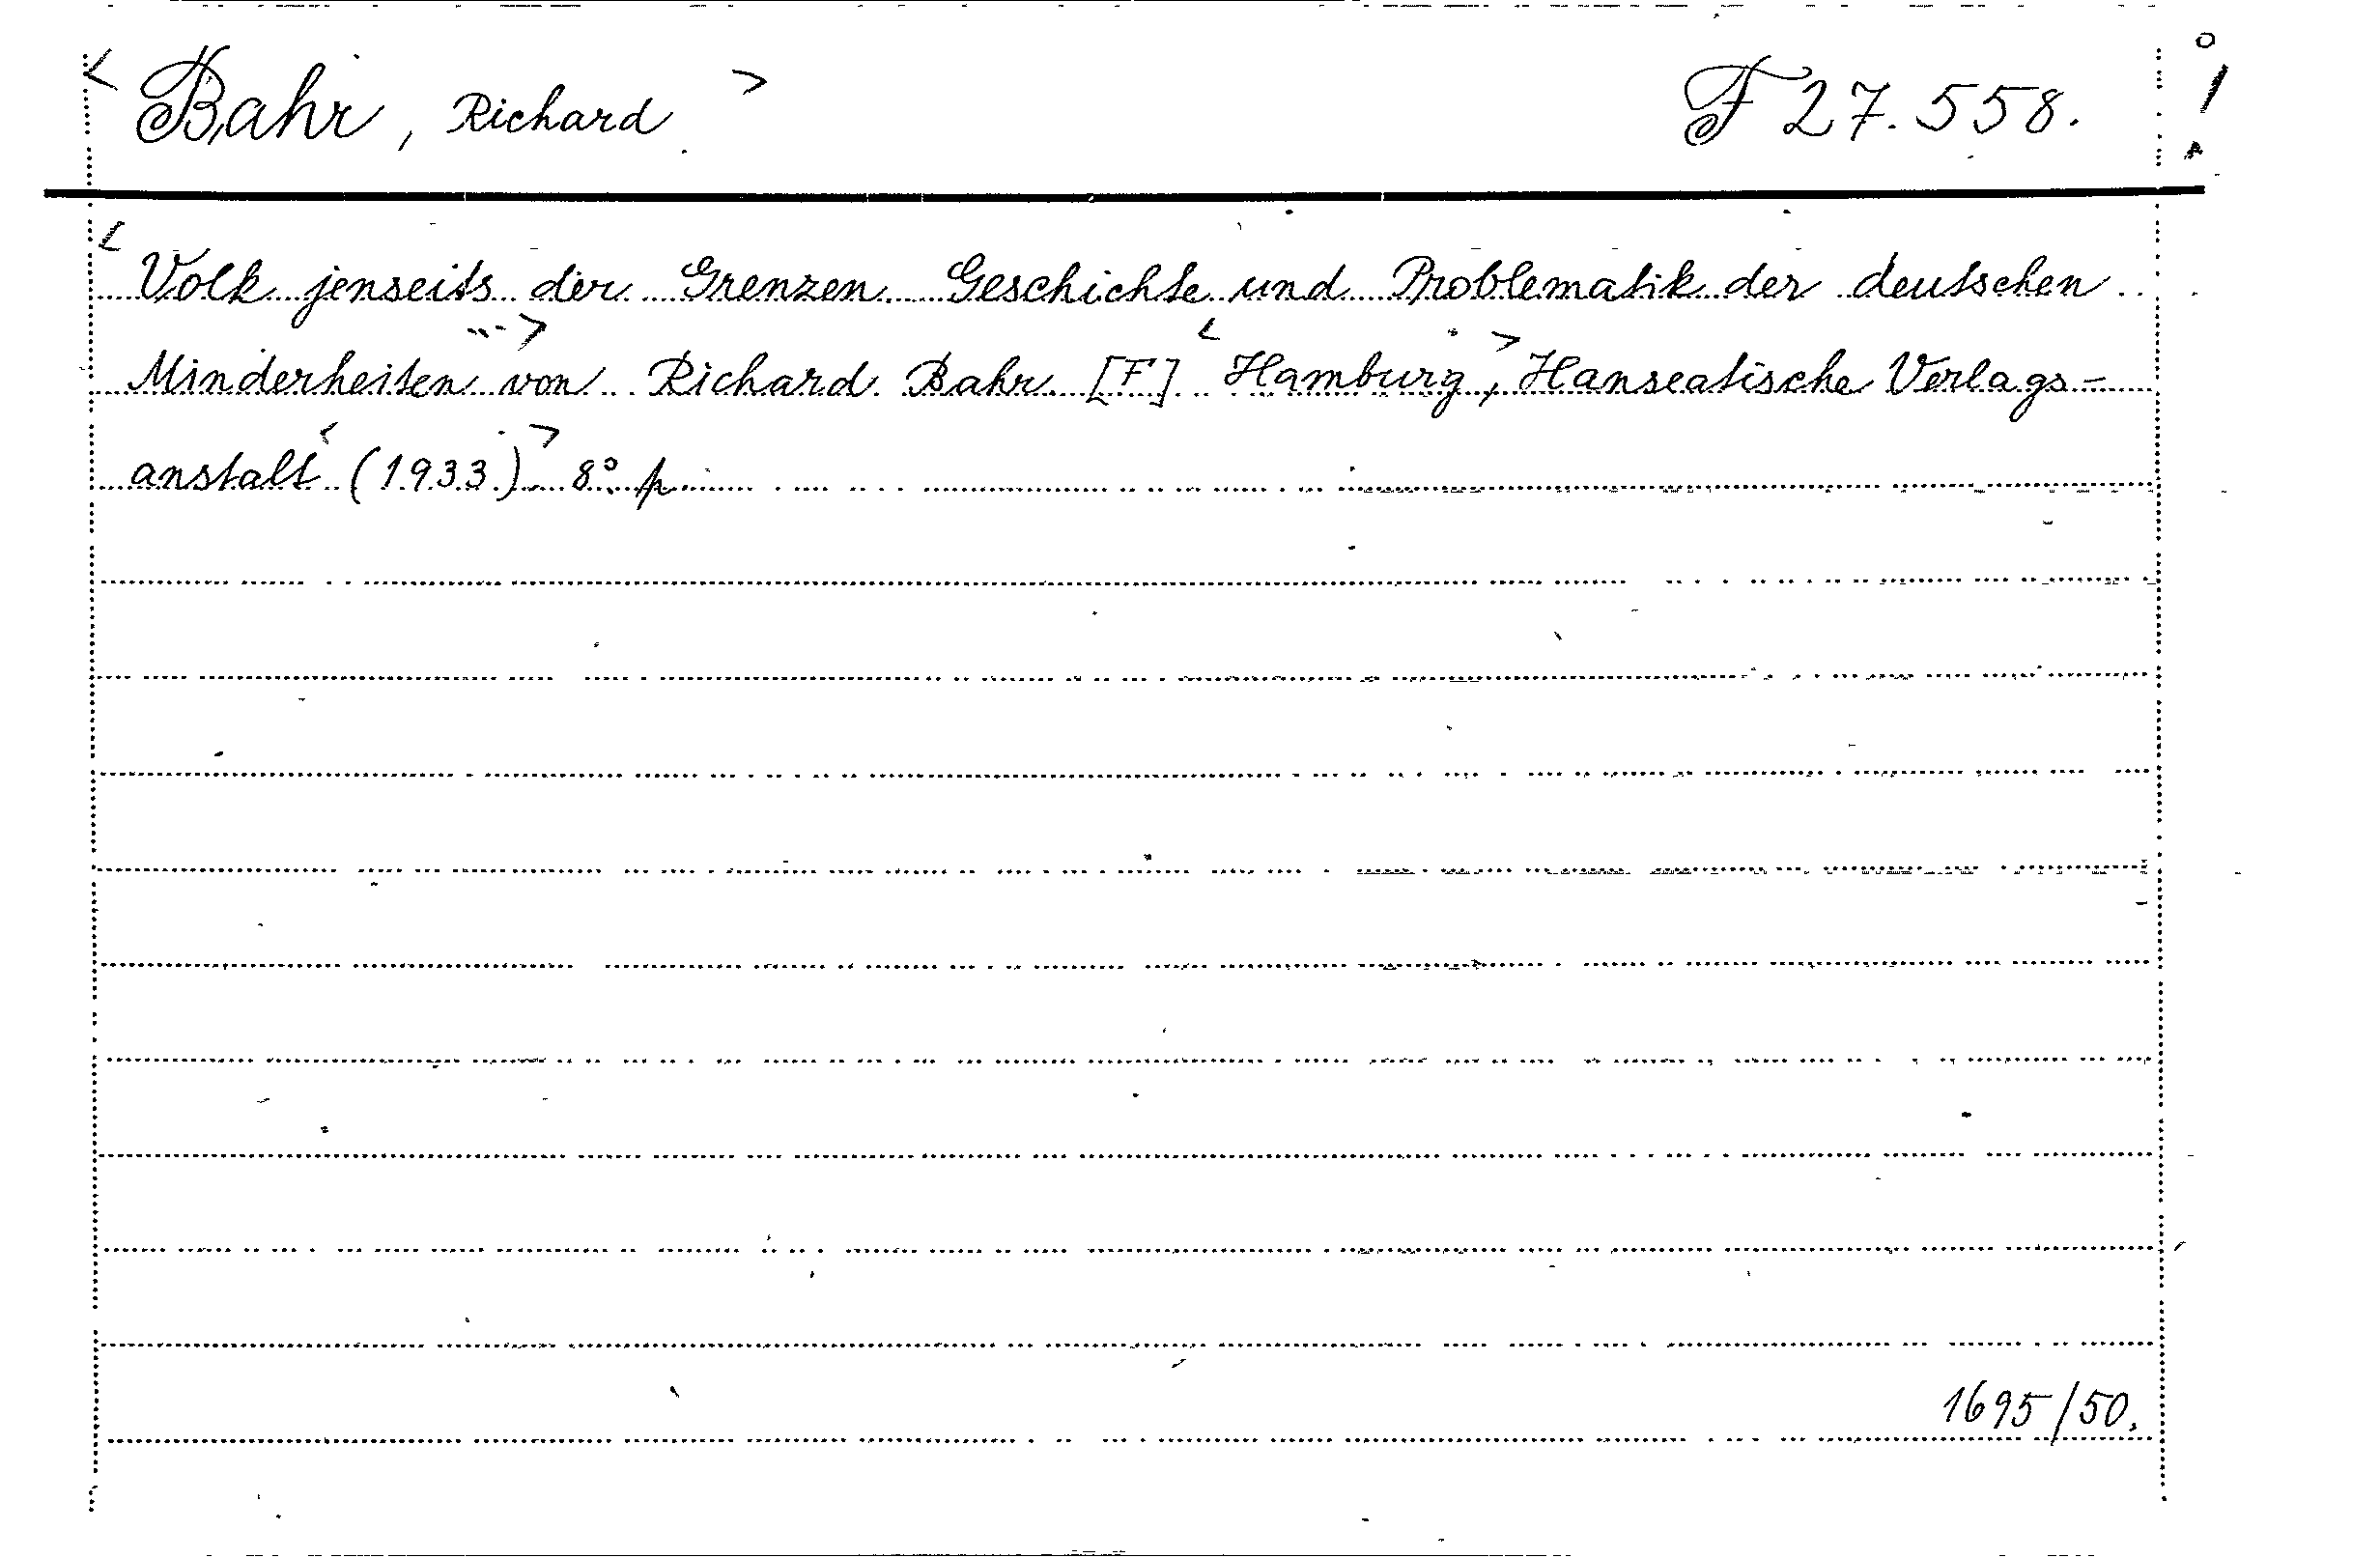 < Bahr, Richard > F 27.558.
< Volk jenseits der Grenzen Geschichte und Problematik der deutschen
Minderheiten ...> von Richard Bahr [F] < Hamburg, > Hanseatische Verlags-
anstalt < (1933) > 8° p
1695/50.